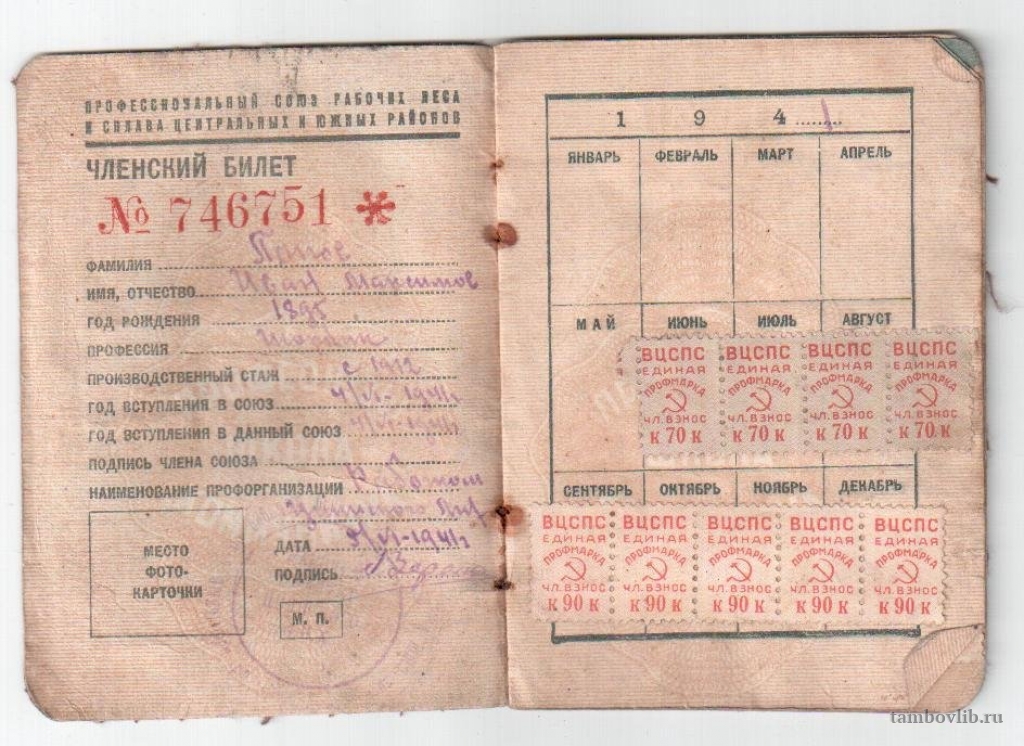 ПРОФЕССИОНАЛЬНЫЙ СОЮЗ РАБОЧИХ ЛЕСА
И СПЛАВА ЦЕНТРАЛЬНЫХ И ЮЖНЫХ РАЙОНОВ
ЧЛЕНСКИЙ БИЛЕТ
№ 746751 *
ФАМИЛИЯ
ИМЯ, ОТЧЕСТВО Иван Максимов
ГОД РОЖДЕНИЯ 1895
ПРОФЕССИЯ
ПРОИЗВОДСТВЕННЫЙ СТАЖ с 1912
ГОД ВСТУПЛЕНИЯ В СОЮЗ 4/VI-1941г
ГОД ВСТУПЛЕНИЯ В ДАННЫЙ СОЮЗ 4/VI-1941г
ПОДПИСЬ ЧЛЕНА СОЮЗА
НАИМЕНОВАНИЕ ПРОФОРГАНИЗАЦИИ Рабочком
МЕСТО
ФОТО-
КАРТОЧКИ
ДАТА 4/VI-1941г
ПОДПИСЬ
М. П.
1 9 4 1
ЯНВАРЬ ФЕВРАЛЬ МАРТ АПРЕЛЬ
МАЙ ИЮНЬ ИЮЛЬ АВГУСТ
ВЦСПС ВЦСПС ВЦСПС ВЦСПС
ЕДИНАЯ ЕДИНАЯ ЕДИНАЯ ЕДИНАЯ
ПРОФМАРКА ПРОФМАРКА ПРОФМАРКА ПРОФМАРКА
ЧЛ. ВЗНОС ЧЛ. ВЗНОС ЧЛ. ВЗНОС ЧЛ. ВЗНОС
К 70 К К 70 К К 70 К К 70 К
СЕНТЯБРЬ ОКТЯБРЬ НОЯБРЬ ДЕКАБРЬ
ВЦСПС ВЦСПС ВЦСПС ВЦСПС ВЦСПС
ЕДИНАЯ ЕДИНАЯ ЕДИНАЯ ЕДИНАЯ ЕДИНАЯ
ПРОФМАРКА ПРОФМАРКА ПРОФМАРКА ПРОФМАРКА ПРОФМАРКА
ЧЛ. ВЗНОС ЧЛ. ВЗНОС ЧЛ. ВЗНОС ЧЛ. ВЗНОС ЧЛ. ВЗНОС
К 90 К К 90 К К 90 К К 90 К К 90 К
tambovlib.ru